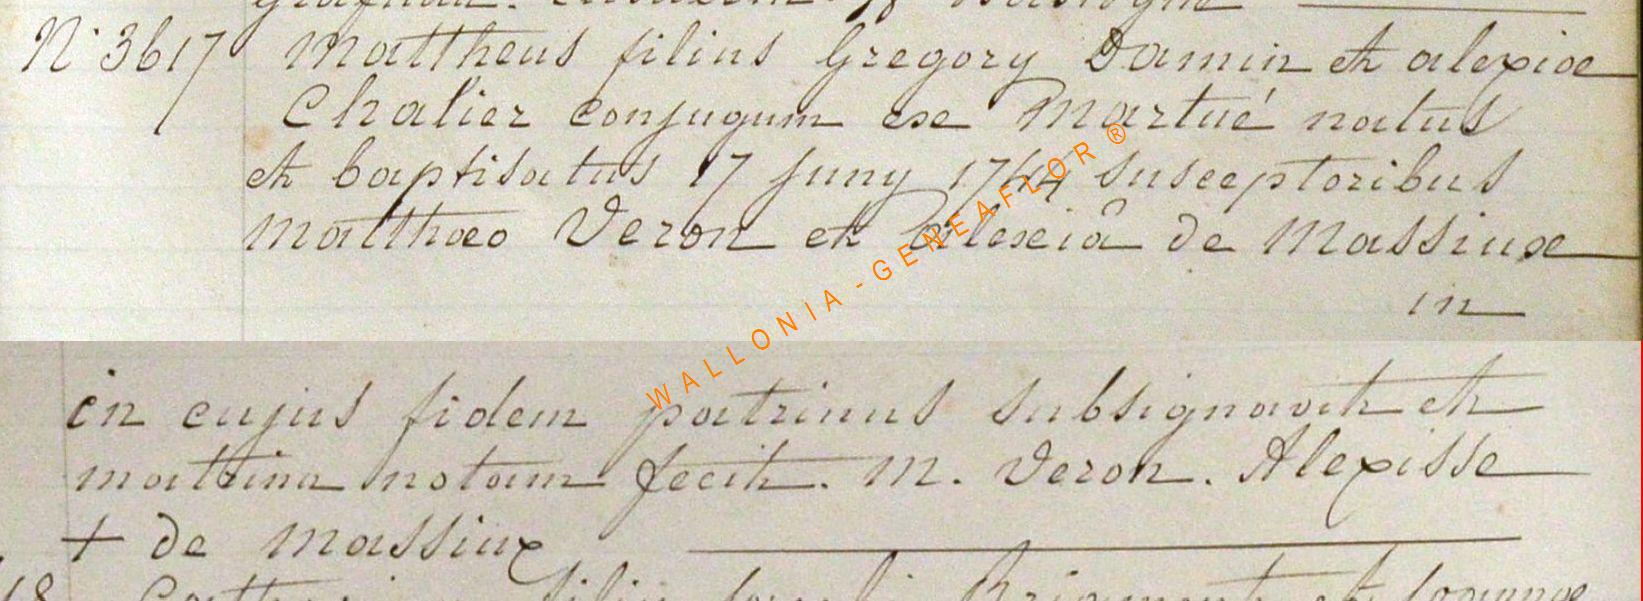 N° 3617 Mattheus filius Gregory Damin et alexiae
Chalier conjugum ex Martué natus
et baptisatus 17 Juny 1764 susceptoribus
matthaeo Veron et alexiâ de Massiux
in
in cujus fidem patrinus subsignavit et
mattrina notam fecit. M. Veron. Alexisse
+ de Massiux
WALLONIA-GENEAFLOR ®